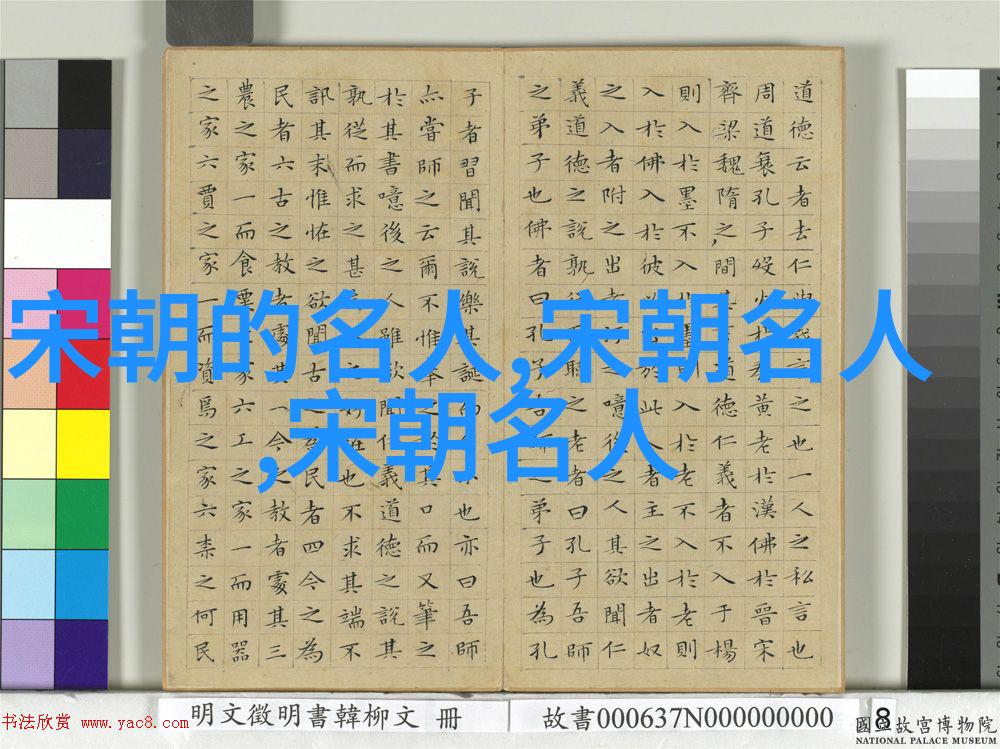 宋朝的名人,宋朝名人
,宋朝名人
道德云者去仁與義言之也一人之私言也
周道衰孔子歿火於黃老於漢佛於晉宋
齊梁魏隋之間其道德仁義者不入于楊
則入於墨不入於墨則入於老不入於老則
入於佛入於彼於此入者主之出者奴
之入者附之出者之噫後之人其欲聞仁
義道德之說孰從聽之老者曰孔子吾師
之弟子也佛者曰孔子吾師之弟子也為孔
子者習聞其說樂其誕而也亦曰吾師
亦嘗師之云爾不惟舉之於其口而又筆之
於其書噫後之人雖欲聞仁義道德之說其
孰從而求之甚之好怪也不求其端不
訊其末惟怪之欲聞古之民者四今之為
民者六古之教者處其一今之教者處其三
農之家一而食粟之家六工之家一而用器
之家六賈之家一而資焉之家六柰之何民
明文徵明書韓柳文 冊
故書000637N000000000
8
书法欣赏 www.yac8.com
國立故宮博物院
NATIONAL PALACE MUSEUM